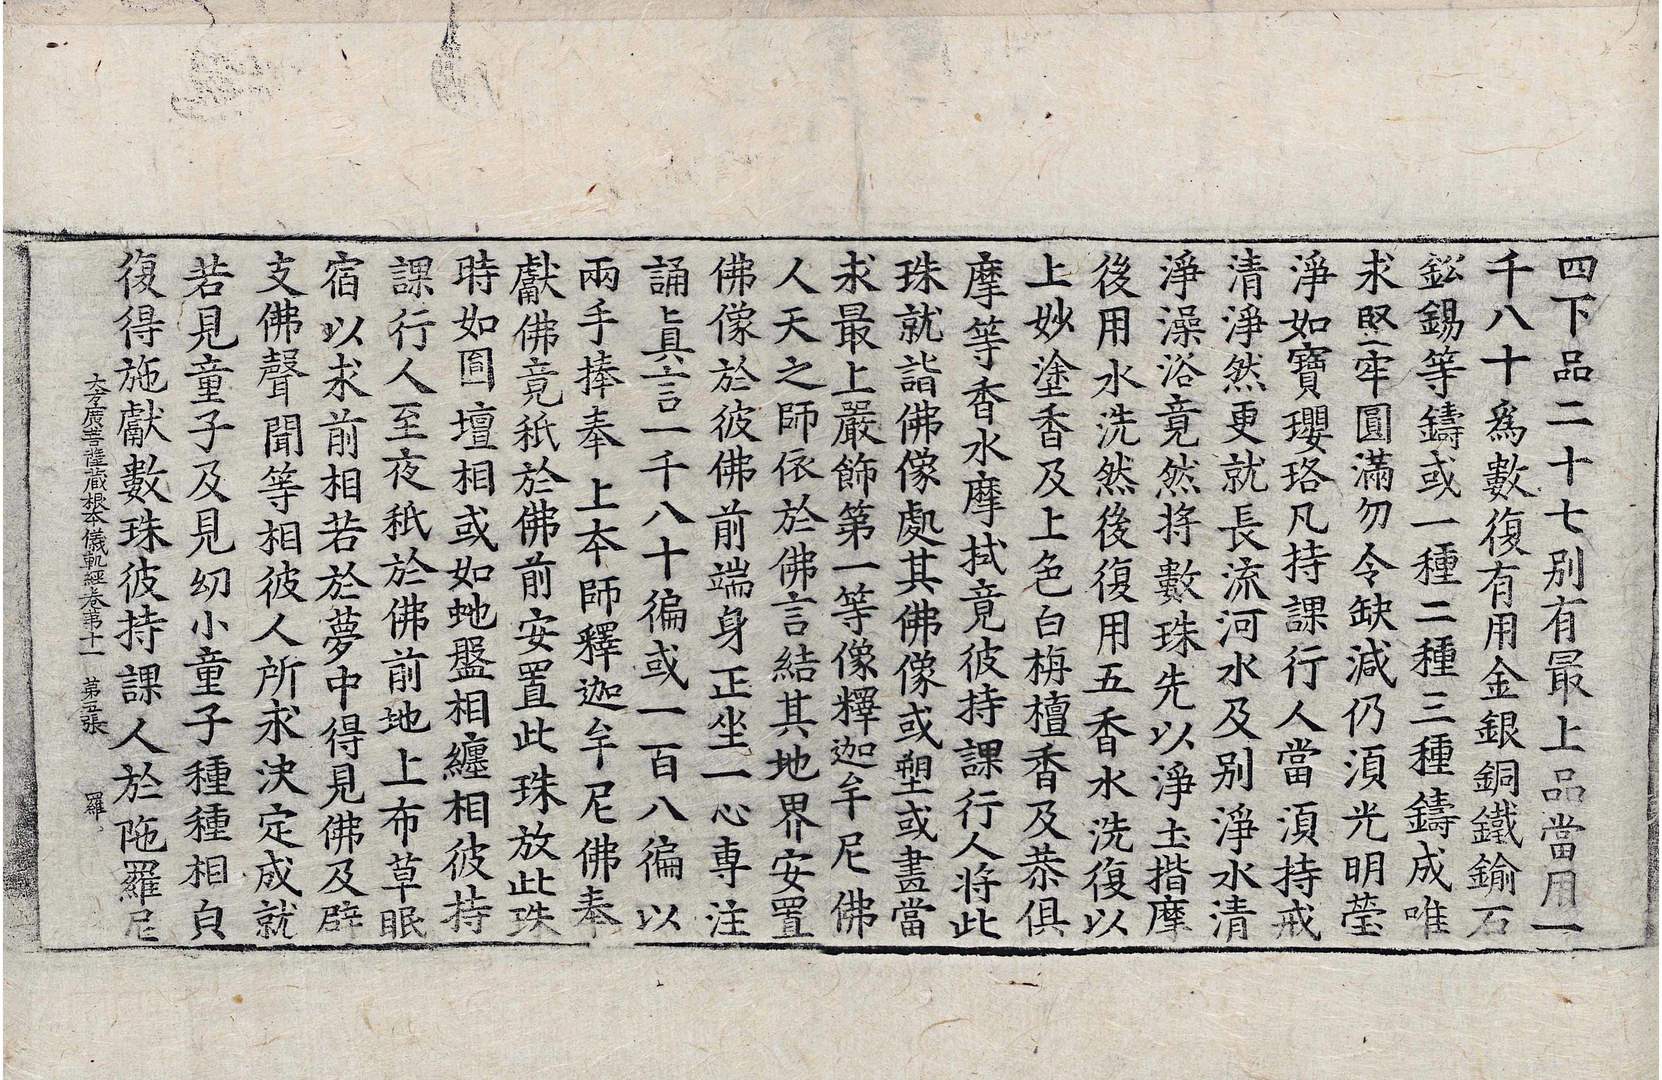 四下品二十七別有最上品當用一
千八十爲數復有用金銀銅鐵鍮石
鈆錫等鑄或一種二種三種鑄成唯
求堅牢圓滿勿令缺減仍須光明瑩
淨如寶瓔珞凡持課行人當須持戒
清淨然更就長流河水及別淨水清
淨澡浴竟然將數珠先以淨土揩摩
後用水洗然後復用五香水洗復以
上妙塗香及上色白栴檀香及恭俱
摩等香水摩拭竟彼持課行人將此
珠就詣佛像處其佛像或塑或畫當
求最上嚴飾第一等像釋迦牟尼佛
人天之師依於佛言結其地界安置
佛像於彼佛前端身正坐一心專注
誦眞言一千八十徧或一百八徧以
兩手捧奉上本師釋迦牟尼佛奉
獻佛竟秖於佛前安置此珠放此珠
時如圓壇相或如虵盤相纏相彼持
課行人至夜秖於佛前地上布草眠
宿以求前相若於夢中得見佛及辟
支佛聲聞等相彼人所求決定成就
若見童子及見幼小童子種種相皃
復得施獻數珠彼持課人於陁羅尼
大方廣菩薩藏根本儀軌經卷第十一 第五張 羅